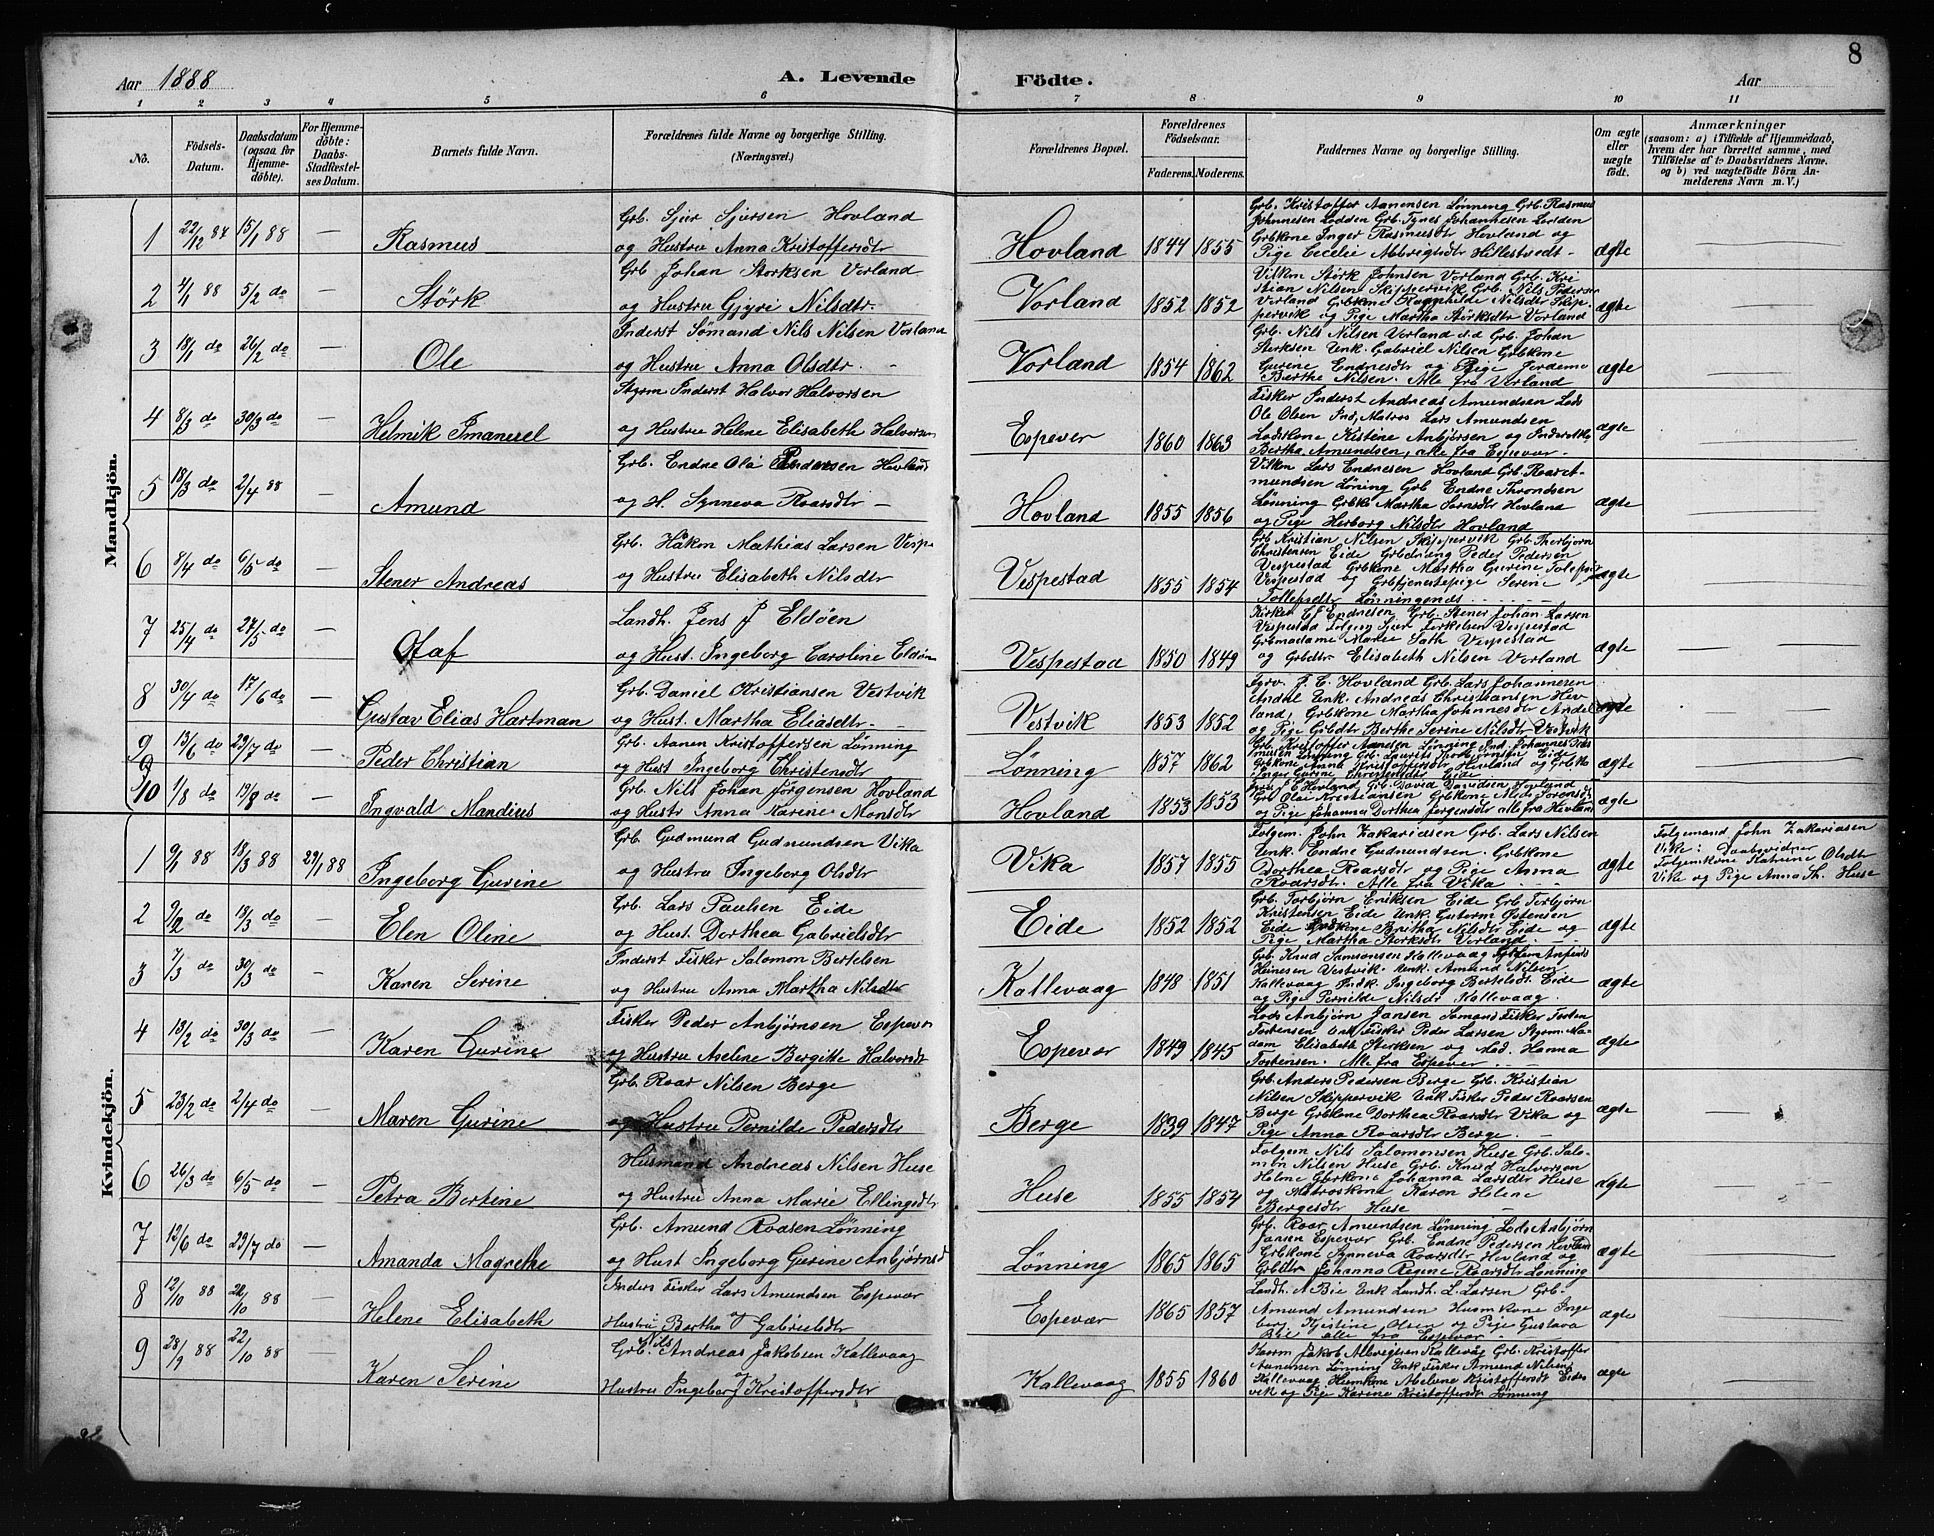 8
Aar 1888
A. Levende Födte.
Aar
1 2 3 4 5 6 7 8 9 10 11
No.
Födsels-Datum.
Daabsdatum (ogsaa for Hjemme-döbte).
For Hjemme-döbte: Daabs-Stadfæstel-ses Datum.
Barnets fulde Navn.
Forældrenes fulde Navne og borgerlige Stilling. (Næringsvei.)
Forældrenes Bopæl.
Forældrenes Födselsaar.
Faderens. Moderens.
Faddernes Navne og borgerlige Stilling.
Om ægte eller uægte födt.
Anmærkninger
(saasom: a) i Tilfælde af Hjemmedaab, hvem der har forrettet samme, med Tilföielse af to Daabsvidners Navne. og b) ved uægtefödte Börn An-melderens Navn m. V.)
Mandkjön.
1 22/12 87 15/1 88 — Rasmus
Grb. Sjur Sjursen Hovland
og Hustru Anna Kristoffersdtr
Hovland 1844 1855
Grb. Kristoffer Aanensen Lønning Grb. Rasmus
Johnnesen Lodden Grb. Johannesen Lodden
Grbkone Inger Rasmusdtr Hovland og
Pige Cecelie Hillestvedt -
ægte
2 4/1 88 5/2 do — Störk
Grb Johan Storksen Vorland
og Hustru Gjyri Nilsdtr.
Vorland 1852 1852
Störk Johnsen Vorland Grb. Kri
stian Nilsen Skippervik Grb. Nils Pedersen
Vorland Grbkone Ragnhilde Nilsdtr Skip-
pervik og Pige Martha Störksdtr Vorland
ægte
3 18/1 do 26/2 do — Ole
Inderst Sømand Nils Nilsen Vorland
og Hustru Anna Olsdtr.
Vorland 1854 1862
Grb. Nils Nilsen Vorland Grb Johan
Störksen Unk. Gabriel Nilsen Grbkone
Gurene Endresdtr og Pige
Berthe Nilsen. Alle fra Vorland
ægte
4 8/3 do 30/3 do Helmik Imanuel
Inderst Halvor Halvorsen
og Hustru Helene Elisabeth Halvorsen
Espevær 1860 1863
Fisker Inderst Andreas Amundsen Lods
Ole Olsen Ind, Matros Lars Amundsen
Lodskone Kistine Anbjørsen og
Bertha Amundsen, alle fra Espevær.
ægte
5 18/3 do 2/4 88 — Amund
Grb. Endre Ola Pedersen Hovland
og H. Synneva Roarsdtr —
Hovland 1855 1856
Lars Endresen Hovland Grb. Roar
mundsen Løning Grb Endre Throndsen
Lønning Grbke Martha Hovland
og Pige Herborg Nilsdtr Hovland
ægte
6 8/4 do 6/5 do — Stener Andreas
Grb. Håkon Mathias Larsen Vespe
og Hustru Elisabeth Nilsdtr
Vespestad 1855 1854
Grb Kristian Nilsen Skippervik Grb. Thorbjørn
Christensen Eide Peder Pedersen
Vespestad Grbkone Martha Gurine
Vespestad og Grbtjenestepige Serine
Lønningen
ægte
7 25/4 do 27/5 do — Olaf
Landh. Jens J Eldøen
og Hust. Ingeborg Caroline Eldøen
Vespestad 1850 1849
Endresen Grb. Stener Johan Larsen
Vespestad Sjur Vespestad
Grbmadame Marie Vespestad
og Grbdtr Elisabeth Nilsen Vorland
ægte
8 30/4 do 17/6 do — Gustav Elias Hartman
Grb. Daniel Kristiansen Vestvik
og Hust. Martha Eliasdtr. —
Vestvik 1853 1852
Hovland Grb. Lars Johannesen
Unk. Andreas Christiansen Hov
land, Grbkone Martha Johannesdtr
og Pige Grbdtr Berthe Serine Nilsdtr Vestvik
ægte
9 13/6 do 29/7 do — Peder Christian
Grb. Aanen Kristoffersen Lønning
og Hust Ingeborg Christensdtr
Lønning 1857 1862
Grb. Kristoffer Aanensen Lønning Ind. Johannes
Lønning Grb.
Grbkone Anna Kristoffersdtr Hovland og
Inger Gurine Christensdtr Eide
ægte
10 1/8 do 19/8 do — Ingvald Mandius
Grb. Nils Johan Jörgensen Hovland
og Hustr Anna Karine Monsdtr
Hovland 1853 1853
Hovland, Grb. David Davidsen Hovland
Grb Olai Kristiansen Grbkone
og Pige Johanna Dorthea Jörgensdtr alle fra Hovland
ægte
Kvindekjön.
1 9/1 88 18/3 88 29/1 88 Ingeborg Gurine
Grb. Gudmund Gudmundsen Vika
og Hustru Ingeborg Olsdtr
Vika 1857 1855
John Zakariasen Grb. Lars Nilsen
Unk. Endre Gudmundsen. Grbkone
Dorthea Roarsdtr og Pige Anna
Roarsdtr. Alle fra Vika
ægte
Folgemand John Zakariasen
Vike: Daabsvidner
Folgemkone Katrine Olsdtr
Vike og Pige Anna Th. Huse
2 9/2 do 18/3 do — Elen Oline
Grb. Lars Paulsen Eide
og Hust Dorthea Gabrielsdtr
Eide 1852 1852
Grb. Torbjørn Eriksen Eide Grb Torbjørn
Kristensen Eide Unk. Gutorm Østensen
Eide Grbkone Britha Nilsdtr Eide og
Pige Martha Storksdtr Vorland
ægte
3 7/3 do 30/3 do — Karen Serine
Inderst Fisker Salomon Bertelsen
og Hustru Anna Martha Nilsdtr
Kallevaag 1848 1851
Grb. Knud Samsonsen Kallevaag
Heinesen Vestvik. Unk. Amund Nilsen
Kallevaag Ingeborg Bertelsdt Eide
og Pige Pernilde Nilsdtr Kallevaag.
ægte
4 19/2 do 30/3 do — Karen Gurine
Fisker Peder Anbjørnsen Espevær
og Hustru Aselene Bergitte Halvorsdt
Espevær 1849 1845
Lods Anbjørn Jansen Sømand Fisker Torsten
Torstensen Unk Fisker Peder Larsen Ma-
dam Elisabeth Størksen og Mad. Hanna
Torstensen. Alle fra Espevær
ægte
5 23/2 do 2/4 do — Maren Gurine
Grb. Roar Nilsen Berge
og Hustru Pernilde Pedersdtr
Berge 1839 1847
Grb. Anders Pedersen Berge Grb. Kristian
Nilsen Skippervik Unk Fisker Peder Roarsen
Berge Grbkone Dorthea Roarsdtr Vika og
Pige Anna Roarsdtr Berge.
ægte
6 26/3 do 6/5 do — Petra Bertine
Husmand Andreas Nilsen Huse
og Hustru Anna Marie Ellingsdtr
Huse 1855 1854
Folgem Nils Salomonsen Huse Grb. Salo-
mon Nilsen Huse Grb. Knud Halvorsen
Grbkone Johanna Larsdtr Huse
og Matroskone Karen Helene
Bergesdtr Huse
ægte
7 12/6 do 29/7 do — Amanda Magrethe
Grb. Amund Roarsen Lønning
og Hust Ingeborg Gurine Anbjørnsd
Lønning 1865 1865
Grb. Roar Amundsen Lønning Lods Anbjørn
Jansen Espevær Grb. Endre Pedersen Hovland
Grbkone Synneva Roarsdtr Hovland og
Grbdtr Johanna Regine Roarsdtr Lønning
ægte
8 12/10 88 28/10 88 — Helene Elisabeth
Inders Fisker Lars Amundsen Espevær
Hustru Bertha Gabrielsdtr
Espevær 1865 1857
Landh. A Bie Unk Landh. L. Larsen Grb.
Amund Amundsen Husmkone Inge
berg, Kjistine Olsen og Pige Gustava
Bie alle fra Espevær
ægte
9 28/9 88 22/10 88 — Karen Serine
Grb. Nils Andreas Jakobsen Kallevaag
Hustru og Ingeborg Kristoffersdtr
Kallevaag 1855 1860
Jakob Kallevåg Grb. Kristoffer
Aanensen Lønning Unk Fisker Amund Nilsen
Kallevaag Husmkone Kristoffersdt Eides
vik og Pige Karine Kristoffersdt Lønning
ægte